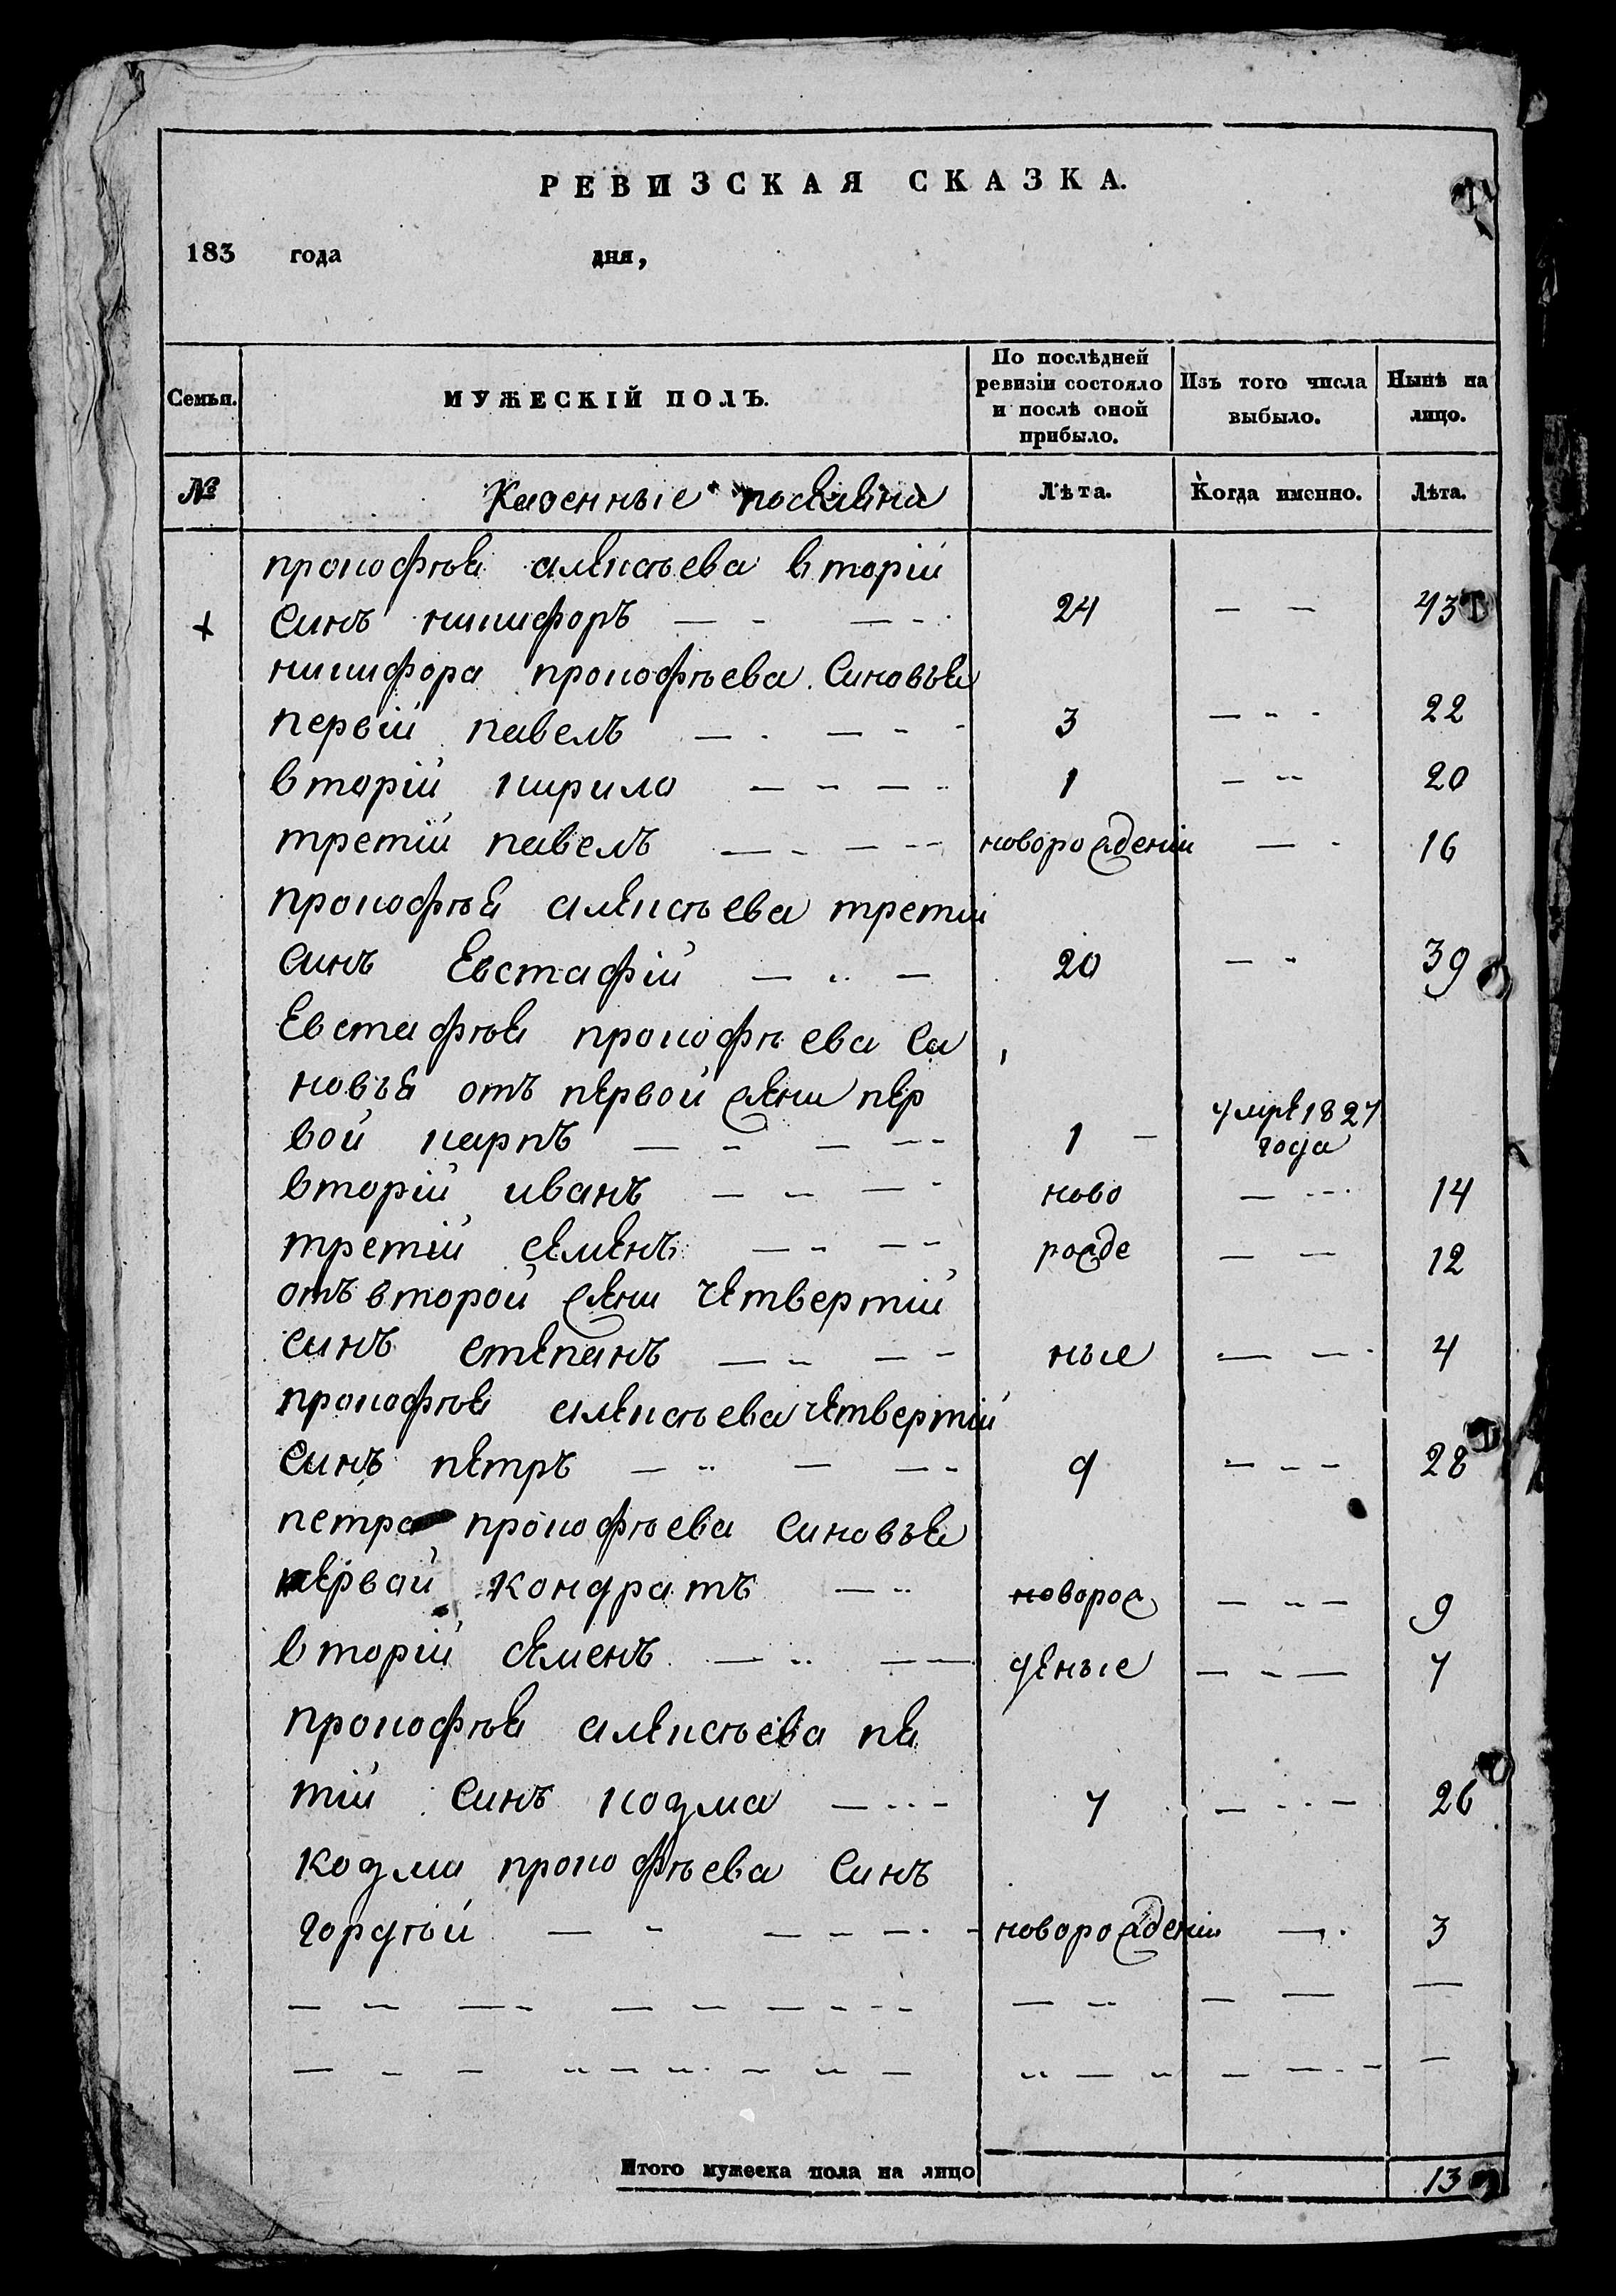 РЕВИЗСКАЯ СКАЗКА.
183 года дня,
Семьи. МУЖЕСКІЙ ПОЛЪ. По послѣдней ревизіи состояло и послѣ оной прибыло. Изъ того числа выбыло. Нынѣ на лицо.
№ Казенные поселяна Лѣта. Когда именно. Лѣта.
прокофъя алексъева вторій
+ синъ никифоръ — - — - - 24 — — 43
никифора прокофъева синовъя
первій павелъ — - — - - 3 — - - 22
вторій кирило — - — - 1 — - 20
третій павелъ — - — - новорожденій — - 16
прокофъя алексъева третій
синъ Евстафій — - — 20 — - 39
Евстафъя прокофъева си
новъя отъ первой жени пер
вой карпъ — - — - - 1 — умре 1827 года
вторій иванъ — - — - ново — - - - 14
третій семенъ — - — - рожде — — 12
отъ второй жени четвертій
синъ степанъ — - — - ные — — - 4
прокофъя алексъева четвертій
синъ петръ — - — — - 9 — - — 28
петра прокофъева синовъя
первай кондратъ — - новорож — - — 9
вторій семенъ — - — — деные — - — 7
прокофъя алексъева пя
тій синъ козма — - - - 7 — - - — 26
козми прокофъева синъ
гордъй — - — - — - - новорожденій — - 3
— - — - — - — - - - — - — — —
— - — - — - - — - — - — - - — - - — - - —
Итого мужеска пола на лицо 13